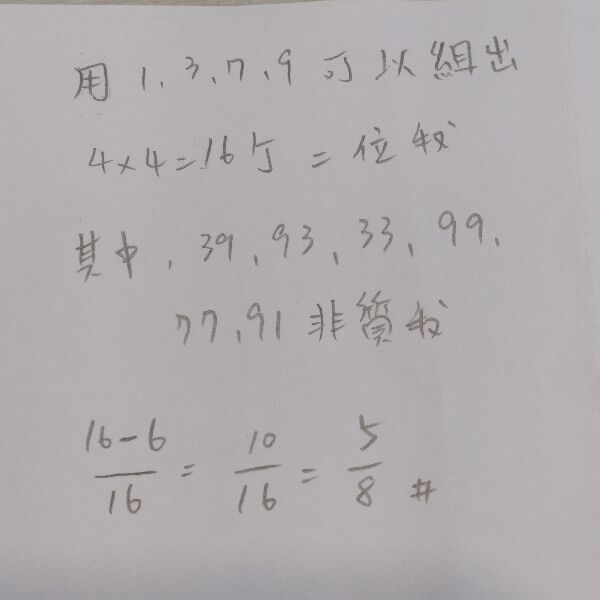 用1、3、7、9可以組出
4×4=16个二位数
其中、39、93、33、99、
77、91非質数
16-6/16 = 10/16 = 5/8 #